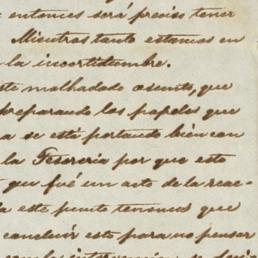 entonces será preciso tener
Mientras tanto estamos en
la incertidumbre.
este malhadado asunto, que
preparando los papeles que
a se está portando bien con
la Tesorería por que esto
que fué un acto de la reac-
a este punto tenemos que
concluir esto para no pensar